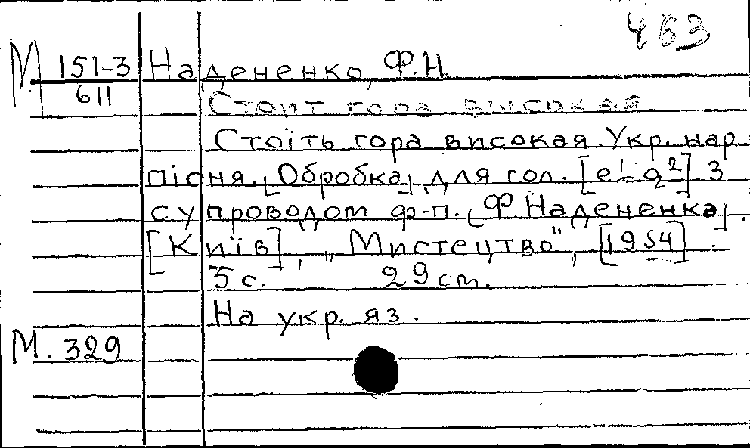 463
М 151-3 Надененко, Ф.Н.
611
Стоит гора высокая
Стоїть гора високая. Укр. нар.
пісня. [Обробка] для гол. [e¹-g²] З
супроводом ф-п. [Ф Надененка].
[Київ], „Мистецтво", [1954].
5 с. 29 cm.
На укр. яз.
М. 329